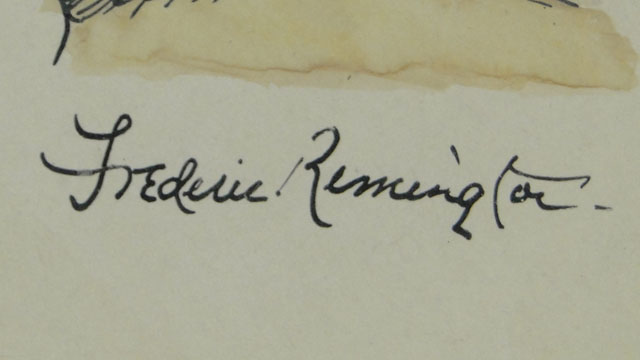 Frederic Remington-